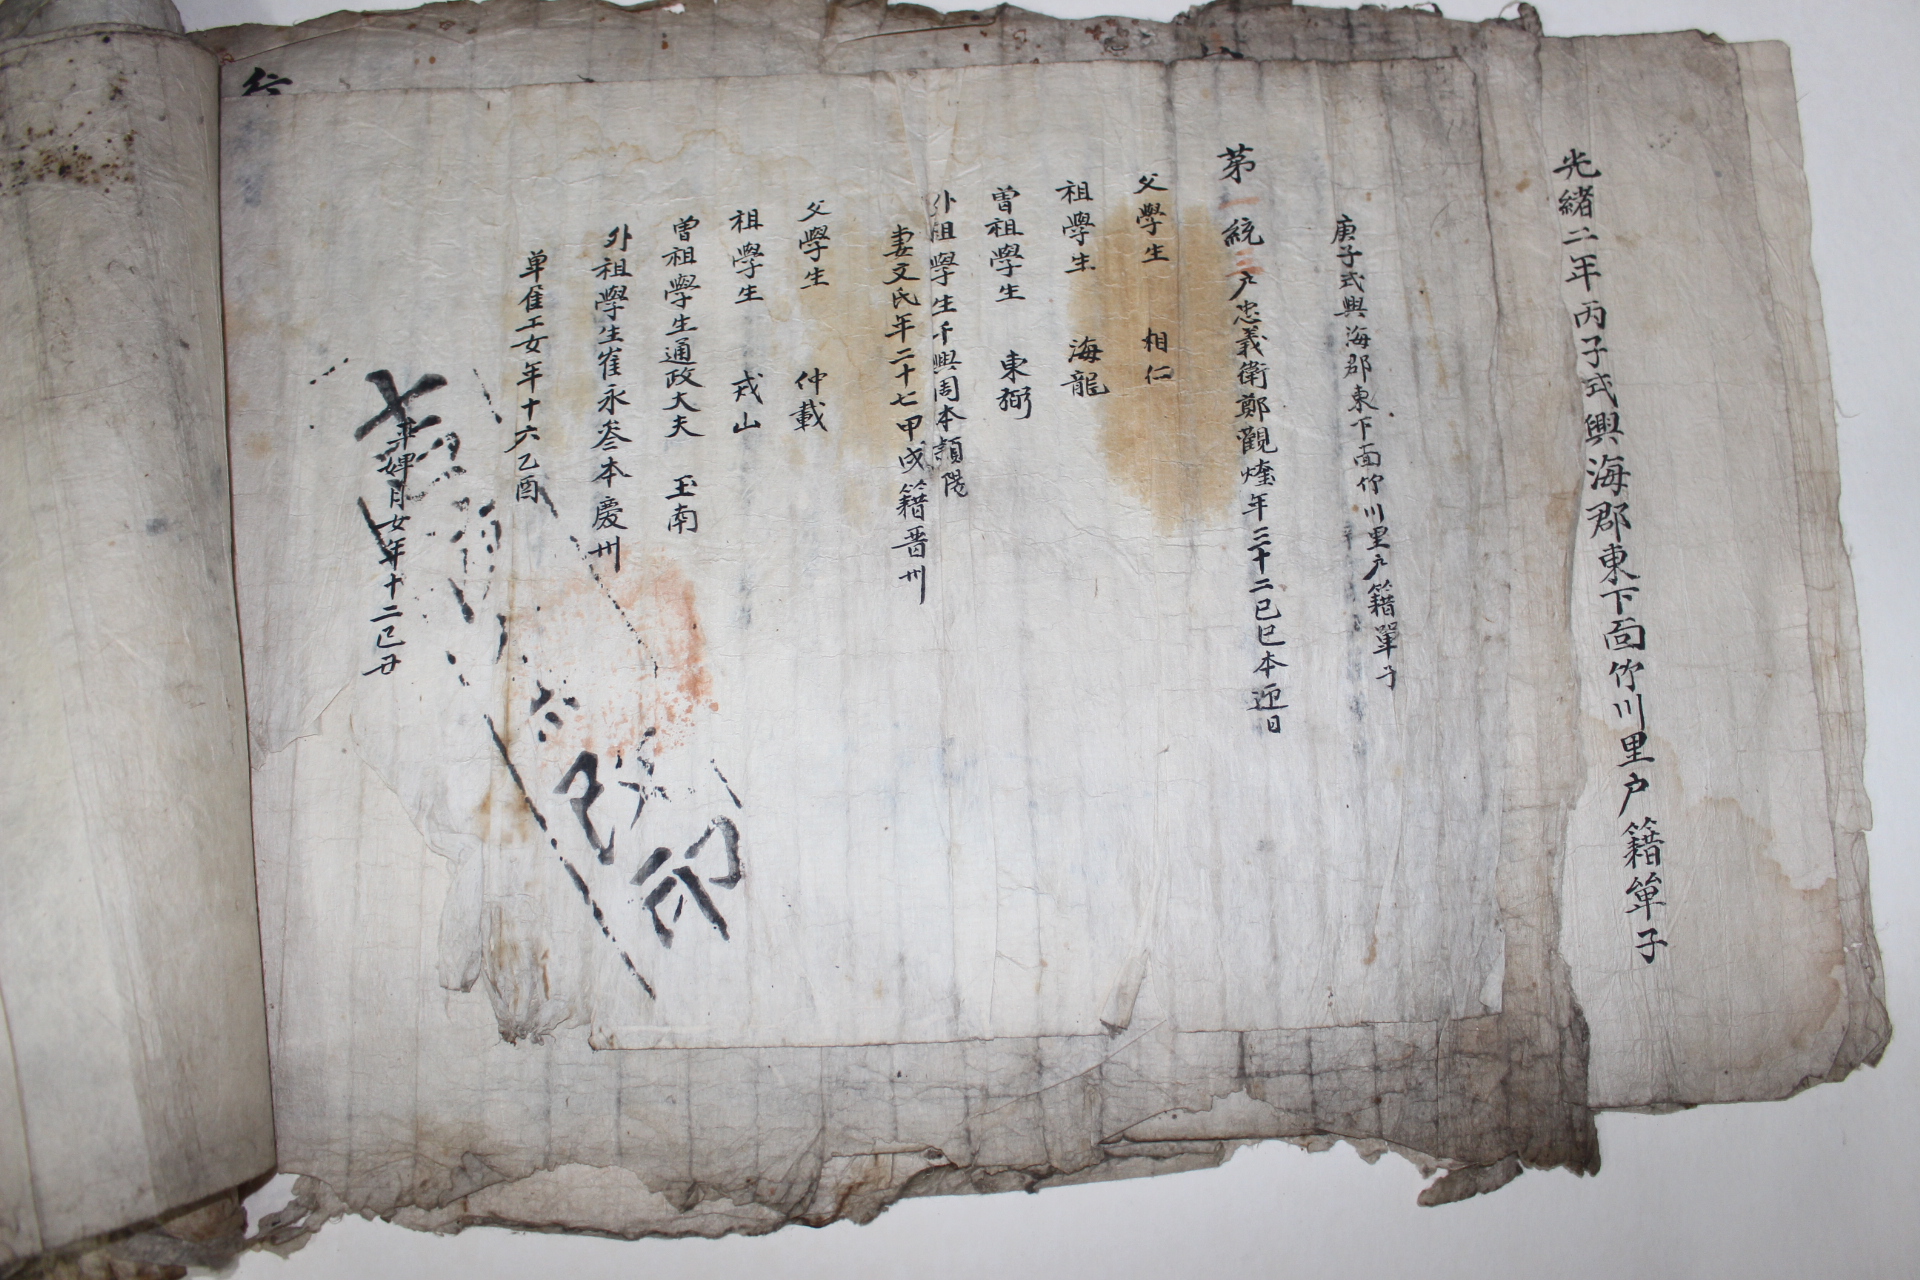 光緒二年丙子式興海郡東下面竹川里戶籍單子
庚子式興海郡東下面竹川里戶籍單子
第一統三戶忠義衛鄭觀燧年三十二己巳本迎日
父學生 相仁
祖學生 海龍
曾祖學生 東弼
外祖學生千興周本潁陽
妻文氏年二十七甲戌籍晋州
父學生 仲載
祖學生 戎山
曾祖學生通政大夫 玉南
外祖學生崔永叁本慶州
单雇工女年十六乙酉
率婢月女年十二己丑
改印